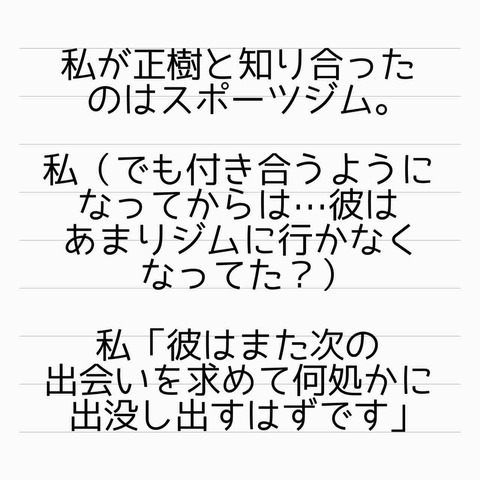 私が正樹と知り合った
のはスポーツジム。
私（でも付き合うように
なってからは…彼は
あまりジムに行かなく
なってた？）
私「彼はまた次の
出会いを求めて何処かに
出没し出すはずです」